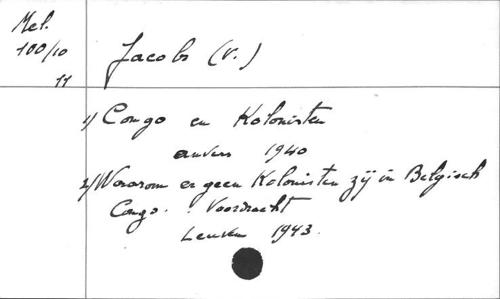 Mel.
100/10
11
Jacobs (V.)
1) Congo en Kolonisten
anvers 1940
2) Waarom er geen Kolonisten zij in Belgisch
Congo. : Voordracht
Leuven 1943.